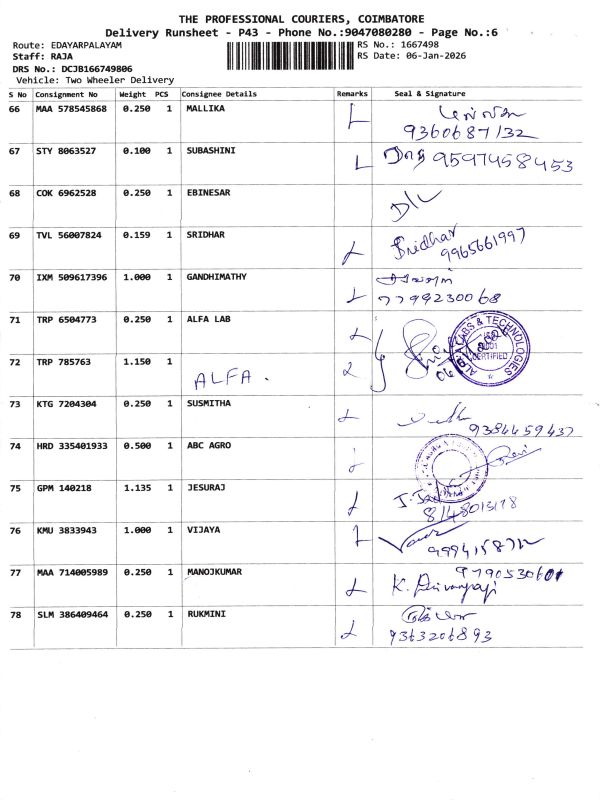 THE PROFESSIONAL COURIERS, COIMBATORE
Delivery Runsheet - P43 - Phone No.:9047080280 - Page No.:6
Route: EDAYARPALAYAM RS No.: 1667498
Staff: RAJA RS Date: 06-Jan-2026
DRS No.: DCJB166749806
Vehicle: Two Wheeler Delivery
S No Consignment No Weight PCS Consignee Details Remarks Seal & Signature
66 MAA 578545868 0.250 1 MALLIKA
9360687132
67 STY 8063527 0.100 1 SUBASHINI 9597458453
68 COK 6962528 0.250 1 EBINESAR D/L
69 TVL 56007824 0.159 1 SRIDHAR Sridhar
9965661997
70 IXM 509617396 1.000 1 GANDHIMATHY
7799230068
71 TRP 6504773 0.250 1 ALFA LAB
LABS & TECHNOLOGIES
CERTIFIED
72 TRP 785763 1.150 1
ALFA.
73 KTG 7204304 0.250 1 SUSMITHA
9384459437
74 HRD 335401933 0.500 1 ABC AGRO
75 GPM 140218 1.135 1 JESURAJ
8148013178
76 KMU 3833943 1.000 1 VIJAYA
77 MAA 714005989 0.250 1 MANOJKUMAR 9790530601
78 SLM 386409464 0.250 1 RUKMINI
9363206893